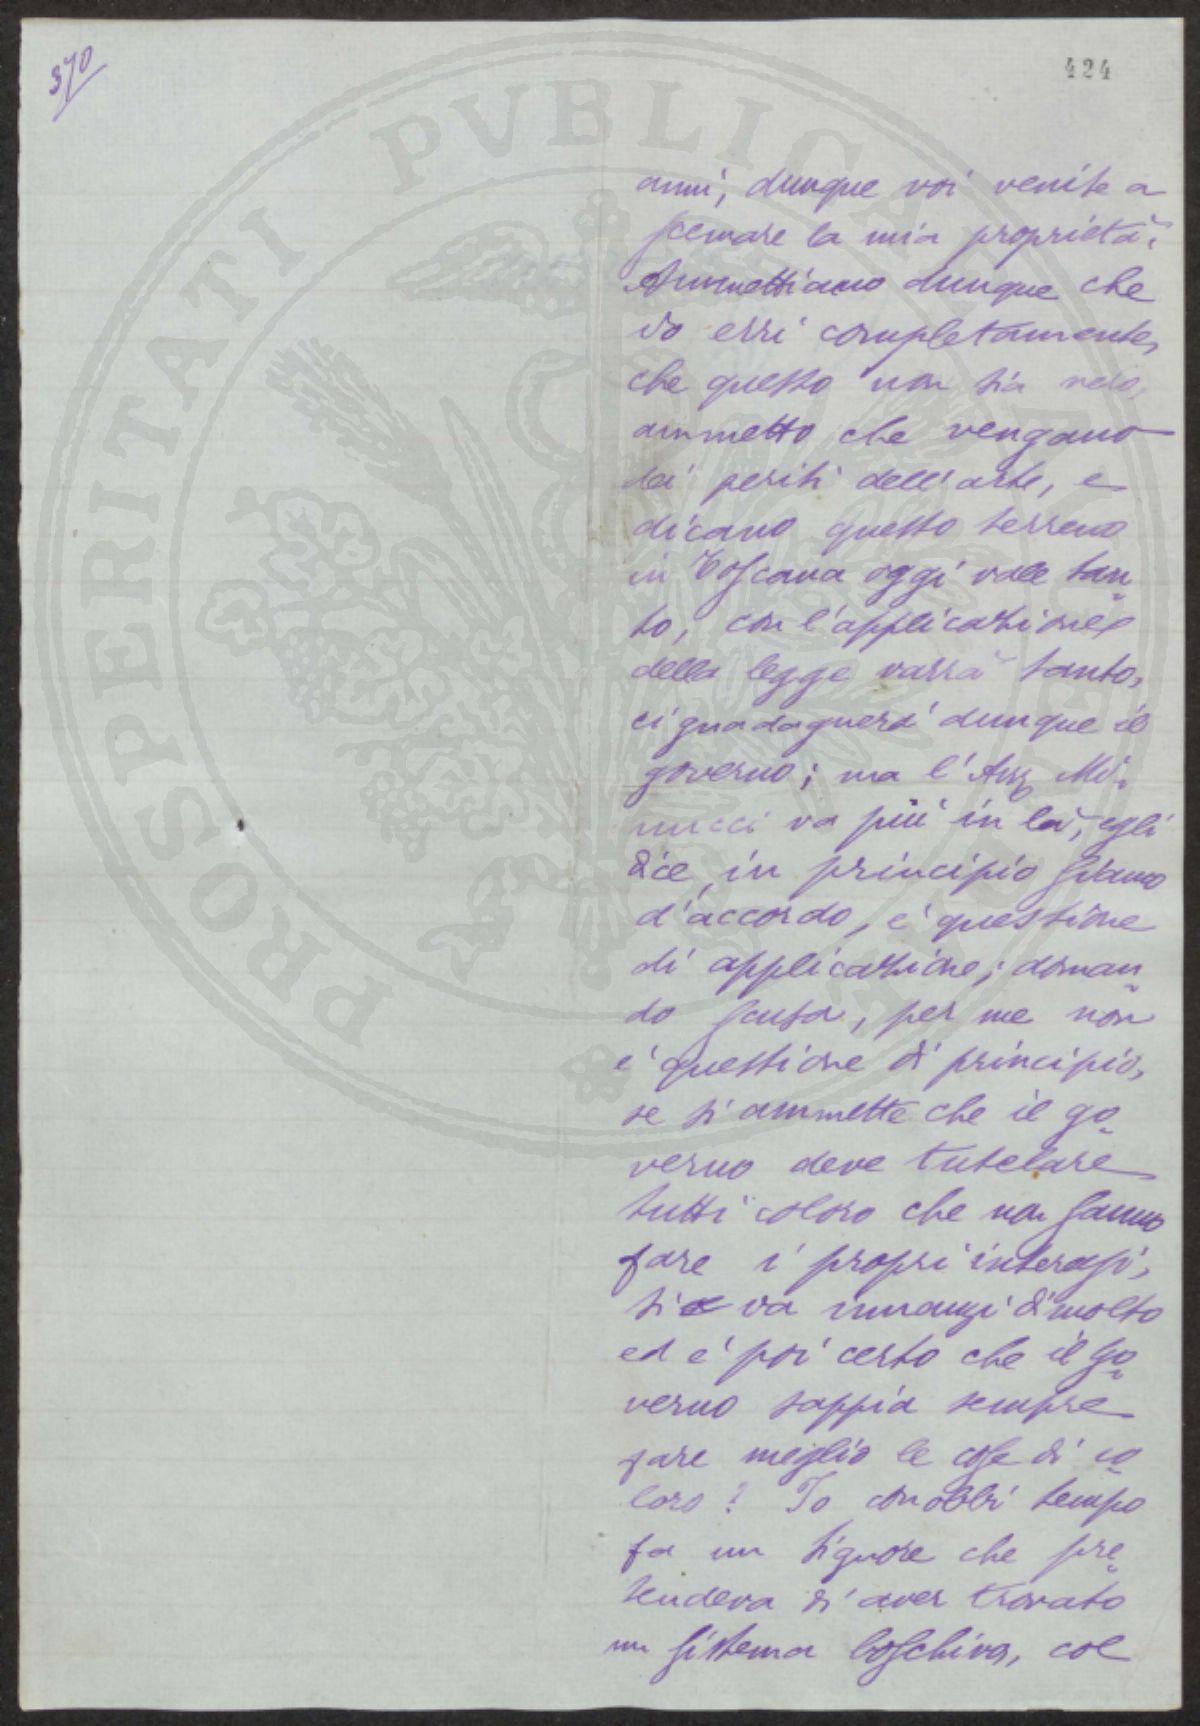 370
424
anni, dunque voi venite a
scemare la mia proprietà.
Ammettiamo dunque che
io erri completamente,
che questo non sia vero,
ammetto che vengano
dei periti dell'arte, e
dicano questo terreno
in Toscana oggi vale tan
to, con l'applicazione
della legge varrà tanto,
ci guadagnerà dunque il
governo; ma l'Avv. Mi
nucci va più in là, egli
dice, in principio siamo
d'accordo, è questione
di applicazione; doman
do scusa, per me non
è questione di principio,
se si ammette che il go
verno deve tutelare
tutti coloro che non sanno
fare i propri interessi,
si va innanzi di molto
ed è poi certo che il go
verno sappia sempre
fare meglio le cose di co
loro? Io conobbi tempo
fa un signore che pre
tendeva di aver trovato
un sistema boschivo, col
PROSPERITATI PVBLICAE